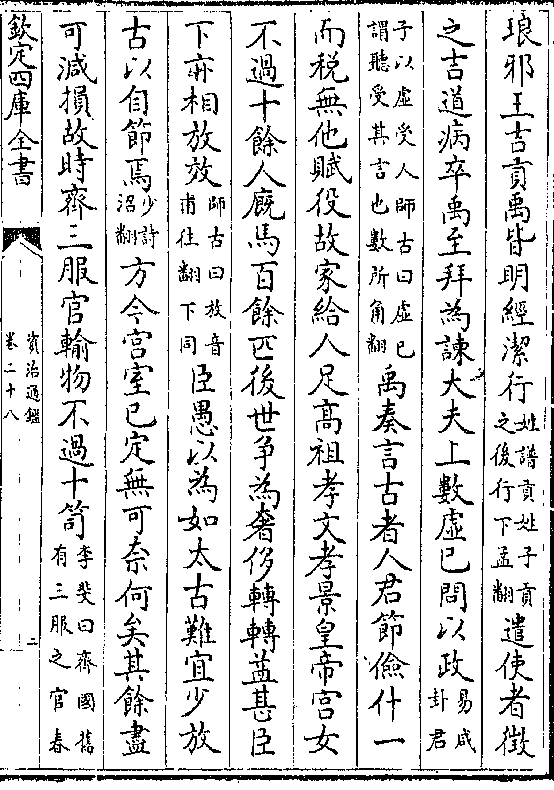 琅邪王吉貢禹皆明經潔行姓譜貢姓子貢之後行下孟翻遣使者徵
之吉道病卒禹至拜為諫大夫上數虛已問以政易咸卦君
子以虛受人師古曰虛已謂聽受其言也數所角翻禹奏言古者人君節儉什一
而稅無他賦役故家給人足高祖孝文孝景皇帝宮女
不過十餘人廐馬百餘匹後世爭為奢侈轉轉益甚臣
下亦相放效師古曰放音甫往翻下同臣愚以為如太古難宜少放
古以自節焉少詩沼翻方今宮室已定無可奈何矣其餘盡
可減損故時齊三服官輸物不過十笥李斐曰齊國舊有三服之官春
欽定四庫全書
資治通鑑
卷二十八
二